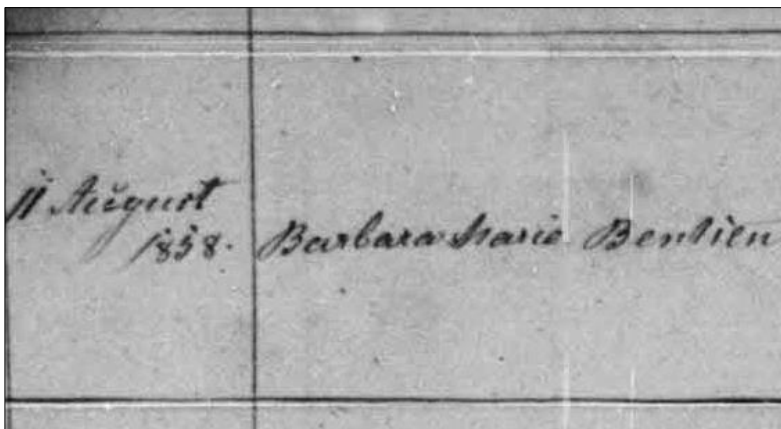 11 August
1858. Barbara Marie Bentien